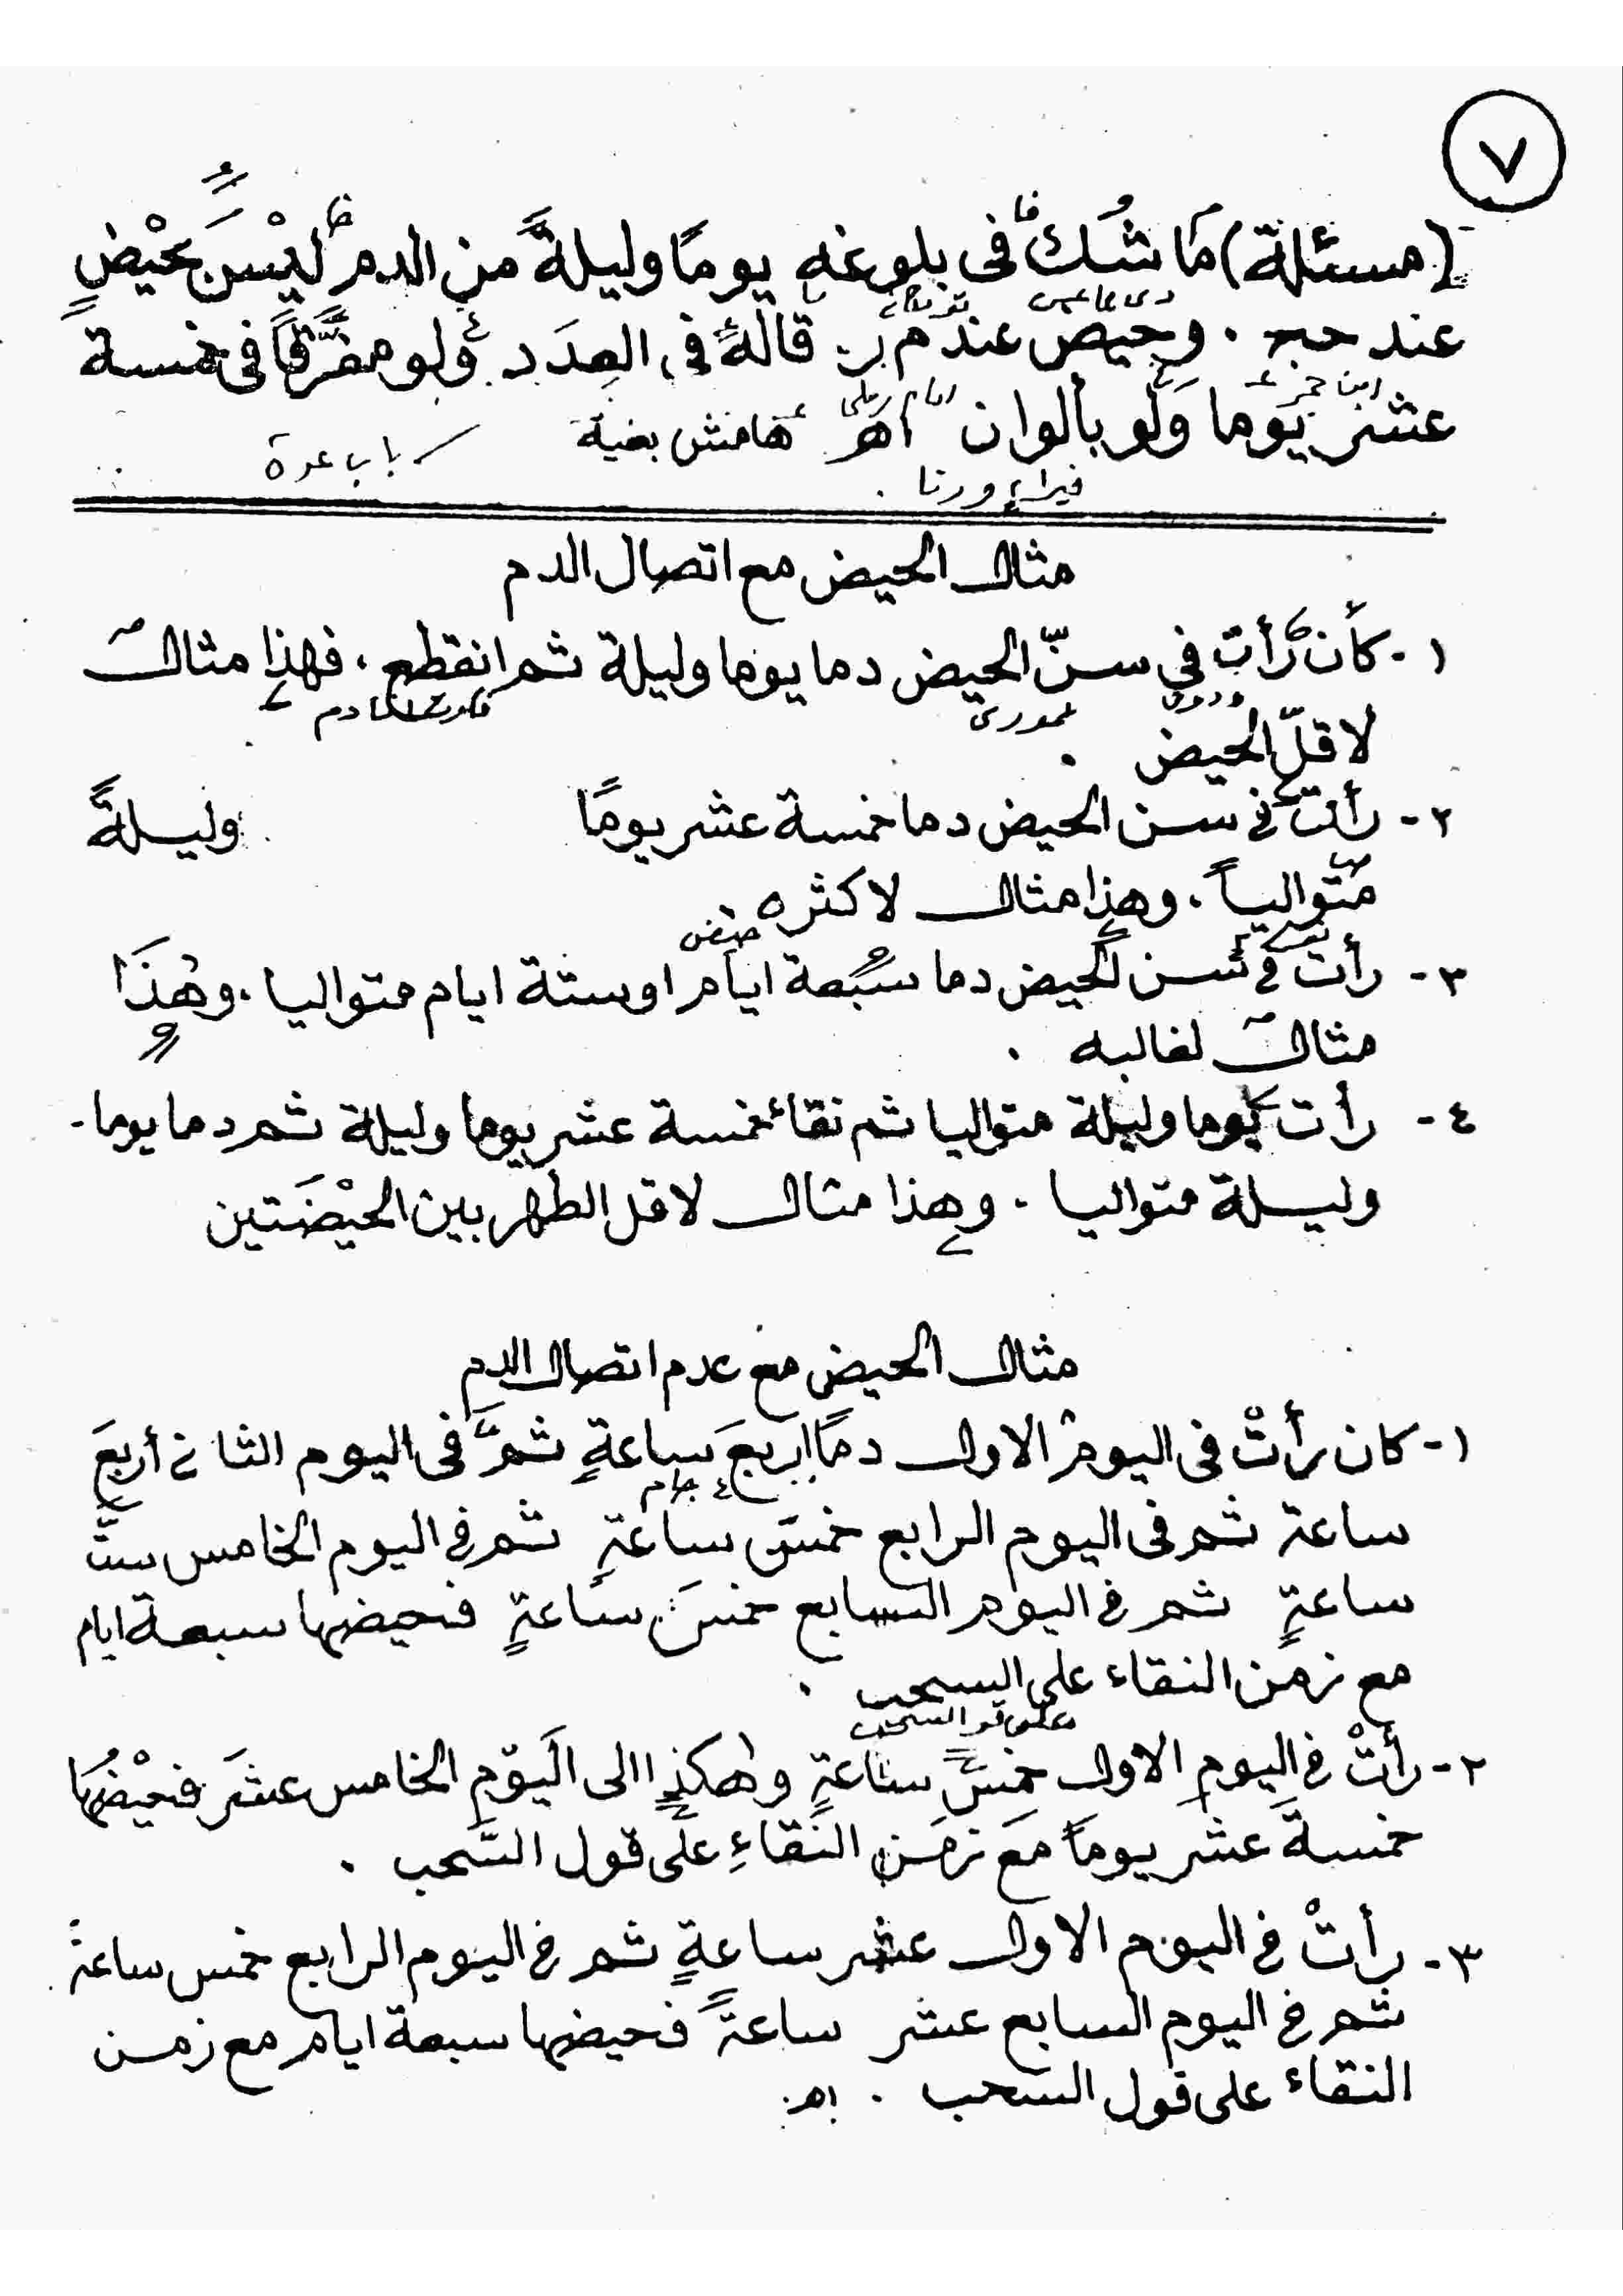 ٧
(مسئلة) مَا شُكَّ فى بلوغه يومًا وليلةً من الدم لَيْسَ بحَيْضٍ
عند حج . وحيض عند م ر . قالهُ في العِدَد ولو مفرَّقًا فى خمسة
ابن حجر
عشر يَوما وَلَو بألوان اهـ هامش بغية
امام رملى
باب عدة
فيرا ورنا
مثال الحيض مع اتصال الدم
١- كأن رأت في سنّ الحيض دما يوما وليلة ثم انقطع . فهذا مثال
لاقلّ الحيض .
٢- رأت في سن الحيض دما خمسة عشر يومًا وليلةً
متواليًا . وهذا مثال لاكثره
٣- رأت في سن الحيض دما سبعة ايام او ستة ايام متواليا . وهٰذَا
مثال لغالبه .
٤- رأت يوما وليلة متواليا ثم نقاء خمسة عشر يوما وليلة ثم دما يوما-
وليلة متواليا . وهذا مثال لاقل الطهر بين الحيْضَتين
مثال الحيض مع عدم اتصال الدم
١- كان رأتْ فى اليوم الاول دمًا اربعَ ساعةٍ ثمَّ فى اليوم الثاني أربعَ
٤ جام
ساعة ثم فى اليوم الرابع خمسَ ساعةٍ ثم في اليوم الخامس ستّ
ساعةٍ ثم في اليوم السابع خمسَ ساعةٍ فحيضها سبعة ايام
مع زمن النقاء على السحب .
على قول السحب
٢- رأتْ في اليومِ الاول خمسَ ساعةٍ وهٰكذا الى الَيوْمِ الخامس عشَر فحيْضُهَا
خمسةَ عشَر يومًا مَعَ زمَنِ النَقَاءِ علَى قول السَّحب .
٣- رأتْ في اليوم الاول عشر ساعةٍ ثم في اليوم الرابع خمس ساعة
ثم في اليوم السابع عشر ساعةً فحيضها سبعة ايام مع زمن
النقاء على قول السحب . اهـ.